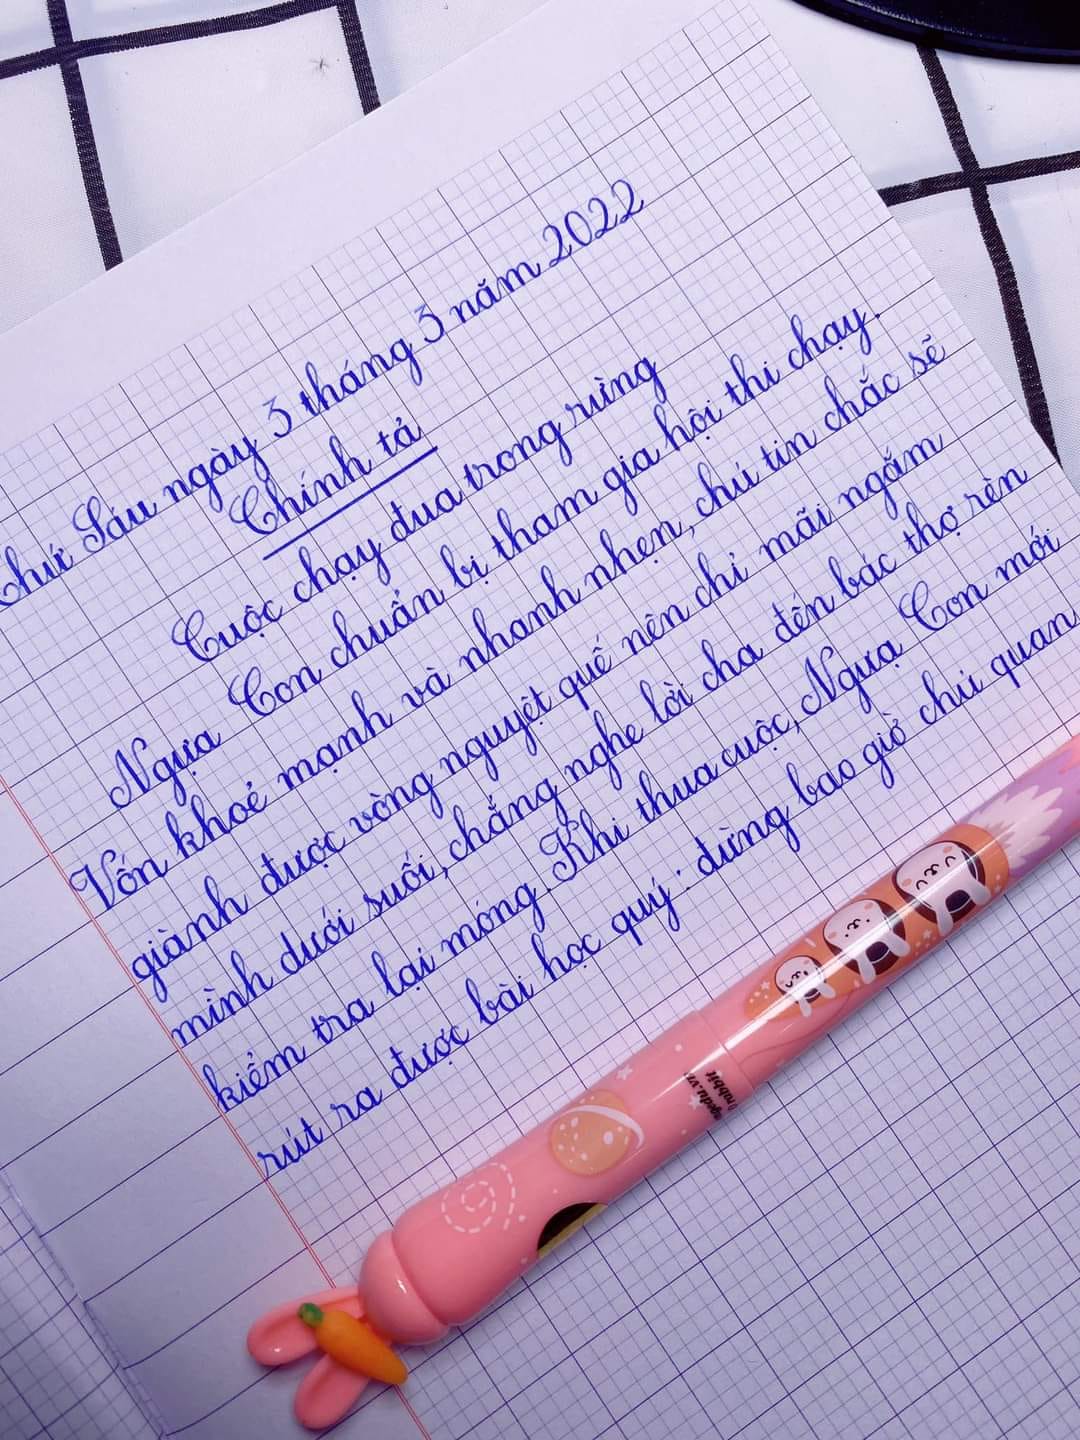 Thứ Sáu ngày 3 tháng 3 năm 2022
Chính tả
Cuộc chạy đua trong rừng
Ngựa Con chuẩn bị tham gia hội thi chạy.
Vốn khoẻ mạnh và nhanh nhẹn, chú tin chắc sẽ
giành được vòng nguyệt quế nên chỉ mãi ngắm
mình dưới suối, chẳng nghe lời cha đến bác thợ rèn
kiểm tra lại móng. Khi thua cuộc, Ngựa Con mới
rút ra được bài học quý: đừng bao giờ chủ quan
rabbit